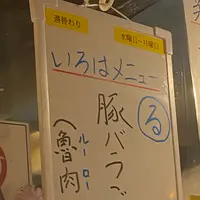 週替わり
水曜日〜日曜日
いろはメニュー
る
豚バラご
(魯肉
ルーロー